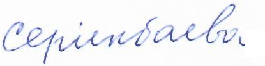 Серікбаева